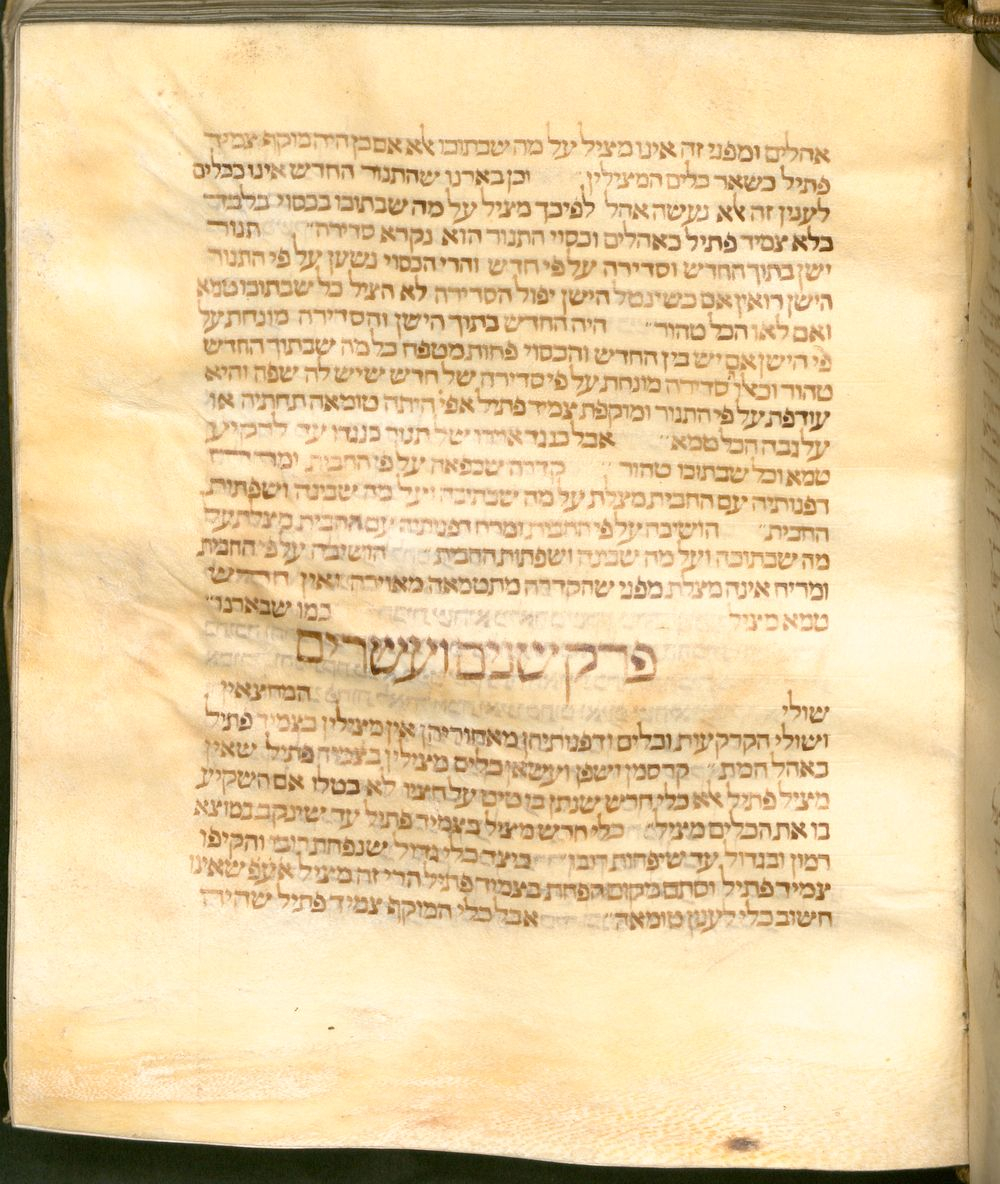 אהלים ומפני זה אינו מציל על מה שבתוכו אלא אם כן היה מוקף צמיד
פתיל כשאר כלים המצילין׳׳ וכן בארנו שהתנור החדש אינו ככלים
לענין זה אלא נעשה אהל לפיכך מציל על מה שבתוכו בכסוי בלבד
בלא צמיד פתיל כאהלים וכסוי התנור הוא נקרא סדירה׳׳ תנור
ישן בתוך החדש וסדירה על פי חדש והרי הכסוי נשען על פי התנור
הישן רואין אם כשינטל הישן יפול הסדירה לא הציל כל שבתוכו טמא
ואם לאו הכל טהור׳׳ היה החדש בתוך הישן והסדירה מונחת על
פי הישן אם יש בין החדש והכסוי פחות מטפח כל מה שבתוך החדש
טהור וכאלו סדירה מונחת על פי סדירה של חרש שיש לה שפה והיא
עודפת על פי התנור ומוקפת צמיד פתיל אפי׳ היתה טומאה תחתיה או
על גבה הכל טמא׳׳ אבל כנגד אוירו של תנור כנגדו עד לרקיע
טמא וכל שבתוכו טהור׳׳ קדרה שכפאה על פי החבית ומרח
דפנותיה עם החבית מצלת על מה שבתוכה ועל מה שבינה ושפתות
החבית׳׳ הושיבה על פי החבית ומרח דפנותיה עם החבית מצלת על
מה שבתוכה ועל מה שבינה ושפתות החבית׳׳ הושיבה על פי החבית
ומריח אינה מצלת מפני שהקדרה מתטמאה מאוירה ואין חרש
טמא מציל כמו שבארנו׳׳
פרק שנים ועשרים
שולי המחצאין
ושולי הקרקעות וכלים ודפנותיהן מאחוריהן אין מצילין בצמיד פתיל
באהל המת׳׳ קרסמן ושפן ועשאן כלים מצילין בצמיד פתיל שאין
מציל פתיל אלא כלי חרש שנתן בו טיט על חציו לא בטלו אם השקיע
בו את הכלים מציל׳׳ כלי חרש מציל בצמיד פתיל עד שינקב במוצא
רמון ובגדול עד שיפחות רובו׳׳ כיצד כלי גדול שנפחת רובו והקיפו
צמיד פתיל וסתם מקום הפחת בצמיד פתיל הרי זה מציל אע׳׳פ שאינו
חשוב כלי לענין טומאה׳׳ אבל כלי המוקף צמיד פתיל שהיה